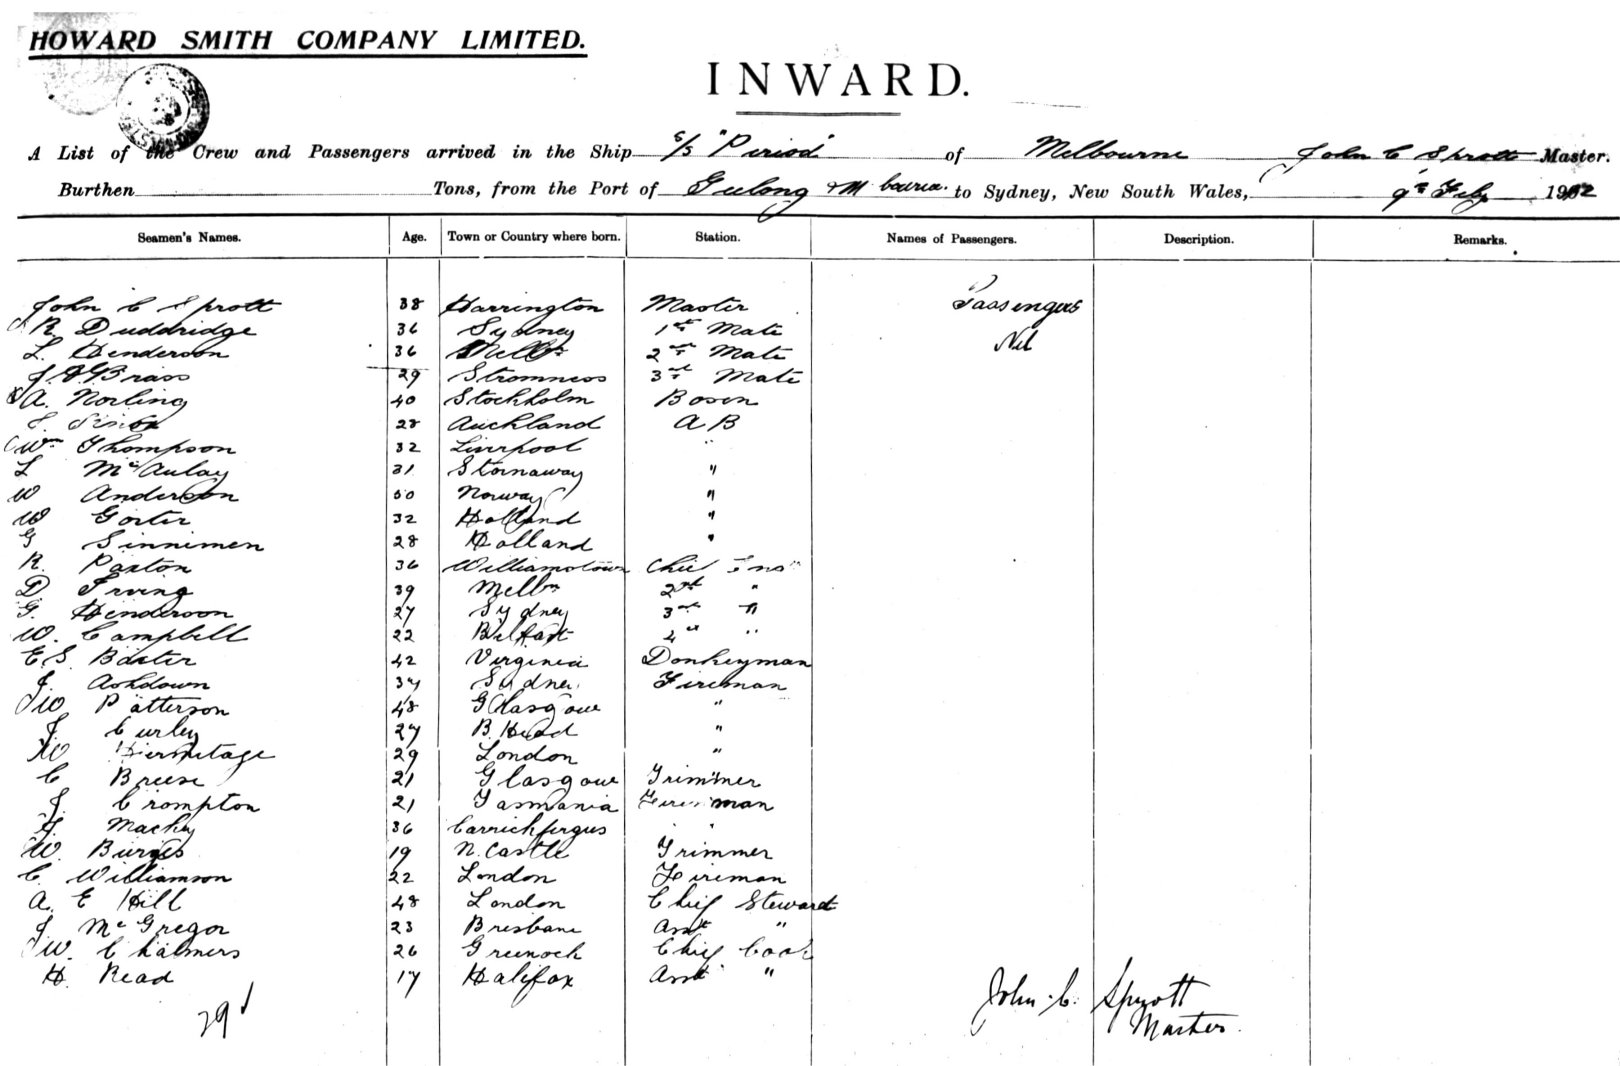 HOWARD SMITH COMPANY LIMITED.
INWARD.
A List of the Crew and Passengers arrived in the Ship s/s "Period" of Melbourne John C Sprott Master.
Burthen Tons, from the Port of Geelong & M to Sydney, New South Wales, 9th Feby 1912
Seamen's Names. Age. Town or Country where born. Station. Names of Passengers. Description. Remarks.
John C Sprott 38 Harrington Master Passengers
R Duddridge 36 Sydney 1st Mate Nil
L. Henderson 36 Melbn 2nd Mate
Brass 29 Stromness 3rd Mate
A. Norling 40 Stockholm Bosen
28 Auckland A B
Wm Thompson 32 Liverpool "
L McAulay 31 Stornaway "
W Anderson 50 Norway "
W Gorter 32 Holland "
G Sinnimen 28 Holland "
R. Paxton 36 Williamstown Chief
D Irving 39 Melbn 2nd "
G. Henderson 27 Sydney 3rd "
W. Campbell 22 Belfast 4th "
E.S. Baxter 42 Virginia Donkeyman
J. Ashdown 37 Sydney Fireman
W Patterson 48 Glasgow "
J. Curley 27 B. Head "
W Hermitage 29 London "
C Breese 21 Glasgow Trimmer
J. Crompton 21 Tasmania Fireman
Mackey 36 Carrickfergus "
W. Burges 19 N. Castle Trimmer
C. Williamson 22 London Fireman
A. E Hill 48 London Chief Steward
J McGregor 23 Brisbane Asst "
W. Chalmers 26 Greenock Chief Cook
H. Read 17 Halifax Asst "
29
John C. Sprott
Master.